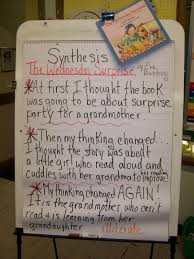 Synthesis
The Wednesday Surprise by Eve Bunting
*At first I thought the book
was going to be about surprise
party for a grandmother.
*Then my thinking changed. I
thought the story was about a
little girl who read aloud and
cuddles with her grandma to improve!
her reading
*My thinking changed AGAIN!
It is the grandmother who can't
read + is learning from her
granddaughter illiterate